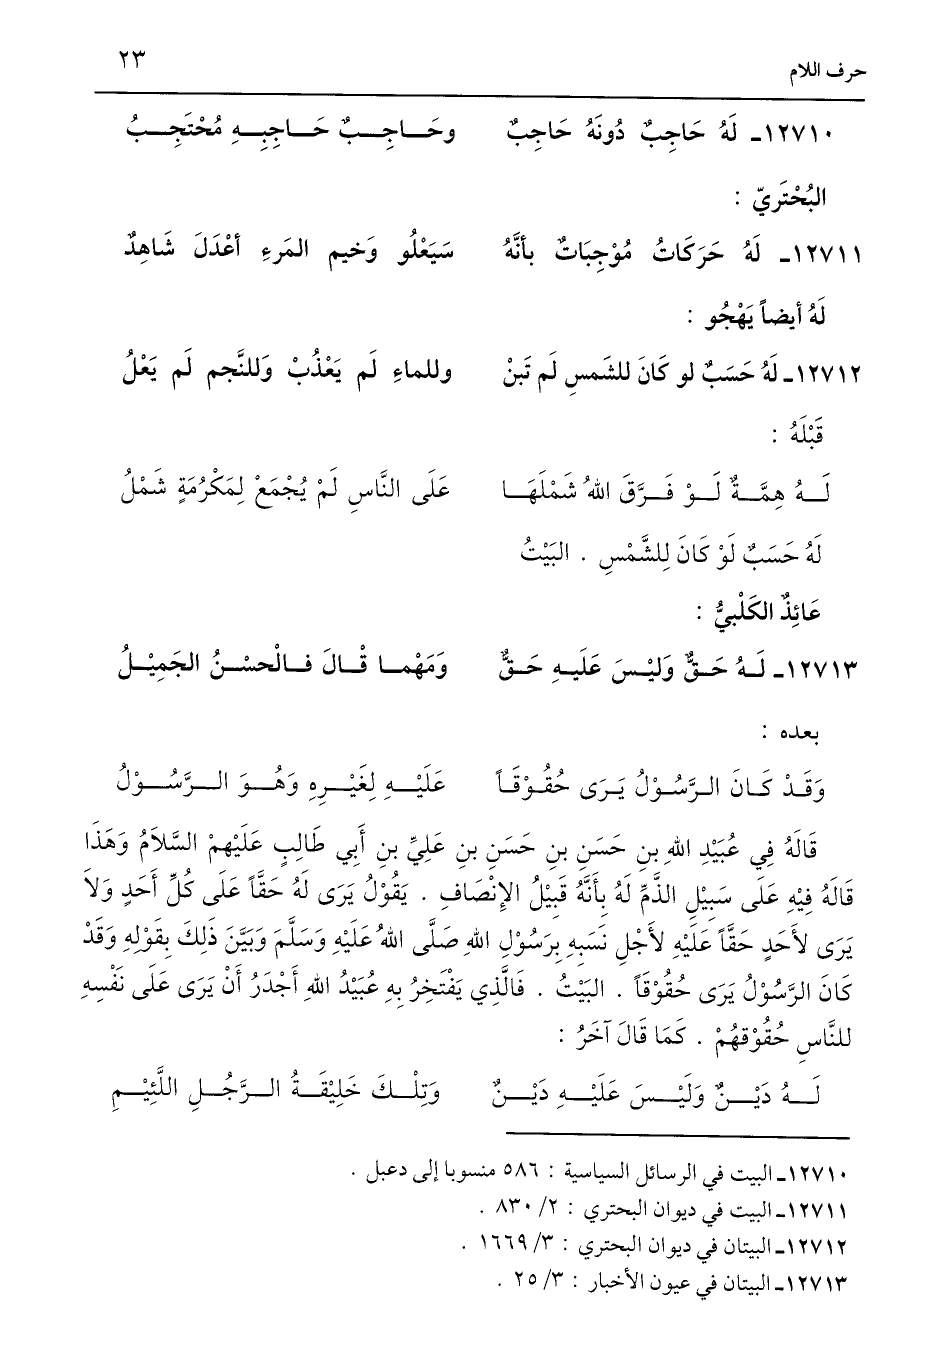 حرف اللام ٢٣
١٢٧١٠ـ لَهُ حَاجِبٌ دُونَهُ حَاجِبٌ وحَـاجِـبٌ حَـاجِبِـهِ مُحْتَجِـبُ
البُحْتَرِيّ :
١٢٧١١ـ لَهُ حَرَكَاتُ مُوْجِبَاتٌ بأنَّهُ سَيَعْلُو وَخيم المَرءِ أعْدَلَ شَاهِدٌ
لَهُ أيضاً يَهْجُو :
١٢٧١٢ـ لَهُ حَسَبٌ لو كَانَ للشَمسِ لَم تَبنْ وللماءِ لَم يَعْذُبْ وَللنَّجم لَم يَعْلُ
قَبْلَهُ :
لَـهُ هِمَّـةٌ لَـوْ فَـرَّقَ اللهُ شَمْلَهَـا عَلَى النَّاسِ لَمْ يُجْمَعْ لِمَكْرُمَةٍ شَمْلُ
لَهُ حَسَبٌ لَوْ كَانَ لِلشَّمْسِ . البَيْتُ
عَائِذٌ الكَلْبيُّ :
١٢٧١٣ـ لَـهُ حَـقٌّ وَلَيْسَ عَلَيـهِ حَـقٌّ وَمَهْمـا قْـالَ فـالْحسْـنُ الجَمِيْـلُ
بعده :
وَقَـدْ كَـانَ الـرَّسُـوْلُ يَـرَى حُقُـوْقَـاً عَلَيْـهِ لِغَيْـرِهِ وَهُـوَ الـرَّسُـوْلُ
قَالَهُ فِي عُبَيْدِ اللهِ بنِ حَسَنِ بنِ حَسَنِ بنِ عَلِيِّ بنِ أَبي طَالِبٍ عَلَيْهمْ السَّلاَمُ وَهَذَا
قَالَهُ فِيْهِ عَلَى سَبِيْلِ الذَمِّ لَهُ بِأَنَّهُ قَبِيْلُ الإِنْصَافِ . يَقُوْلُ يَرَى لَهُ حَقَّاً عَلَى كُلِّ أَحَدٍ وَلاَ
يَرَى لأَحَدٍ حَقَّاً عَلَيْهِ لأَجْلِ نَسَبهِ بِرَسُوْلِ اللهِ صَلَّى اللهُ عَلَيْهِ وَسَلَّمَ وَبَيَّنَ ذَلِكَ بِقَوْلِهِ وَقَدْ
كَانَ الرَّسُوْلُ يَرَى حُقُوْقَاً . البَيْتُ . فَالَّذِي يَفْتَخِرُ بِهِ عُبَيْدُ اللهِ أَجْدَرُ أَنْ يَرَى عَلَى نَفْسِهِ
للنَّاسِ حُقُوْقهُمْ . كَمَا قَالَ آخَرُ :
لَـهُ دَيْـنٌ وَلَيْـسَ عَلَيْـهِ دَيْـنٌ وَتِلْـكَ خَلِيْقَـةُ الـرَّجُـلِ اللَّئِيْـمِ
١٢٧١٠ـ البيت في الرسائل السياسية : ٥٨٦ منسوبا إلى دعبل .
١٢٧١١ـ البيت في ديوان البحتري : ٢/ ٨٣٠ .
١٢٧١٢ـ البيتان في ديوان البحتري : ٣/ ١٦٦٩ .
١٢٧١٣ـ البيتان في عيون الأخبار : ٣/ ٢٥ .